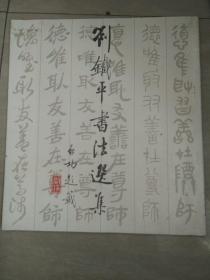 德惟取友善在尊師
德惟取友善在尊師
德惟取友善在尊師
劉鐵平書法選集
德惟取友善在尊師
德惟取友善在尊師